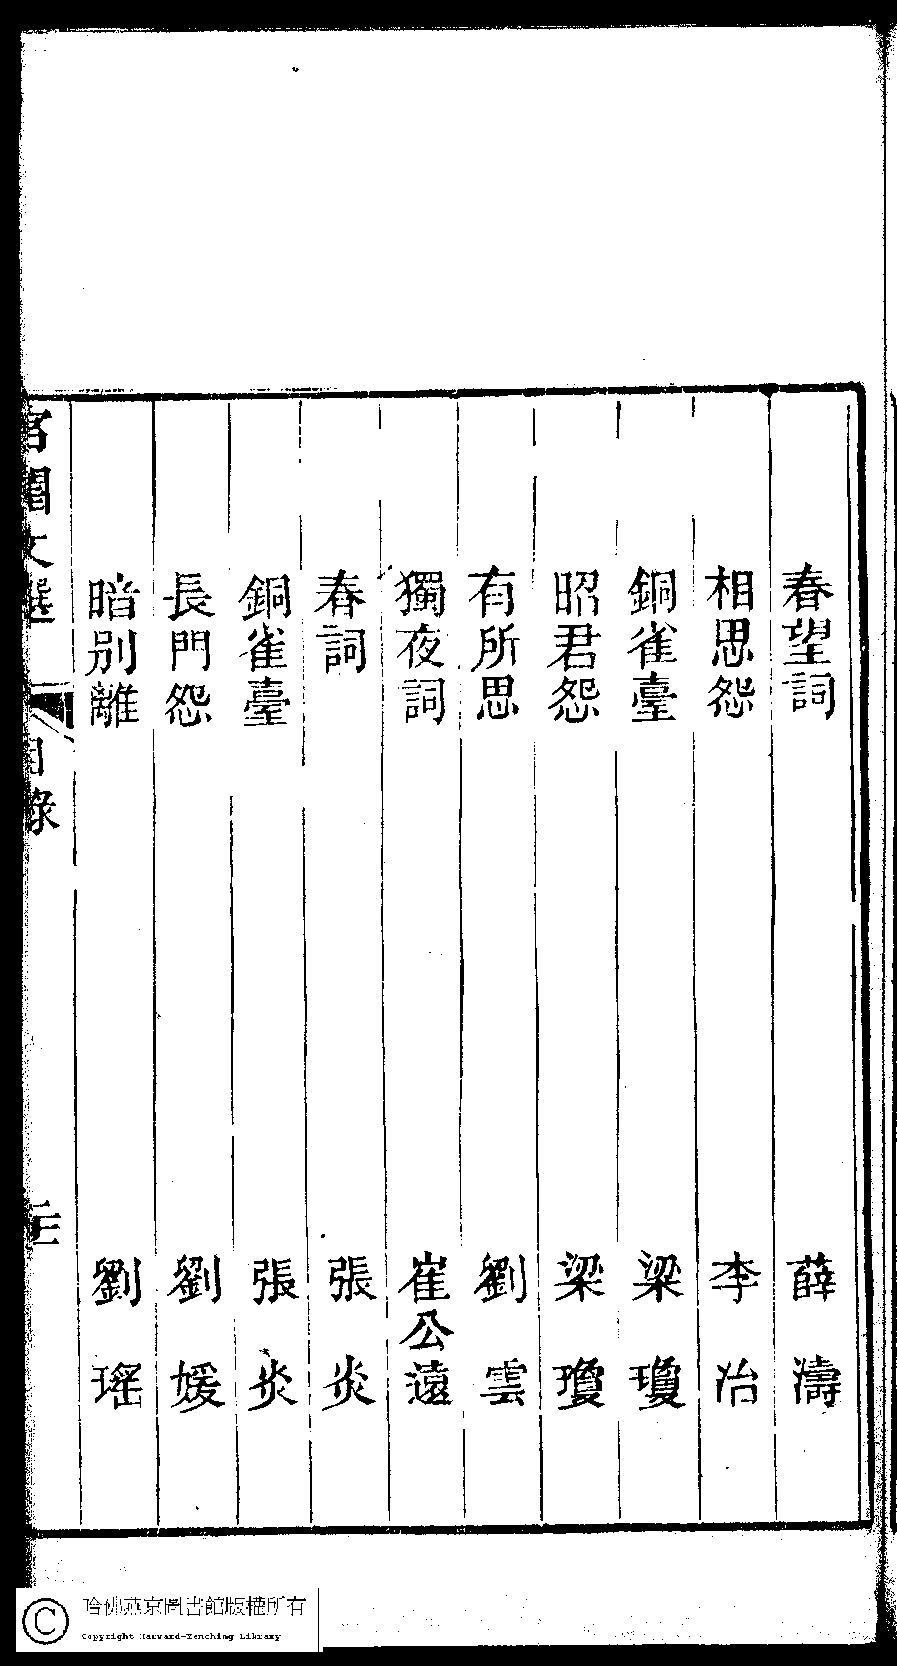 春望詞 薛濤
相思怨 李冶
銅雀臺 梁瓊
昭君怨 梁瓊
有所思 劉雲
獨夜詞 崔公遠
春詞 張炎
銅雀臺 張炎
長門怨 劉媛
暗別離 劉瑤
宮閨文選 目錄
哈佛燕京圖書館版權所有
Copyright Harvard-Yenching Library